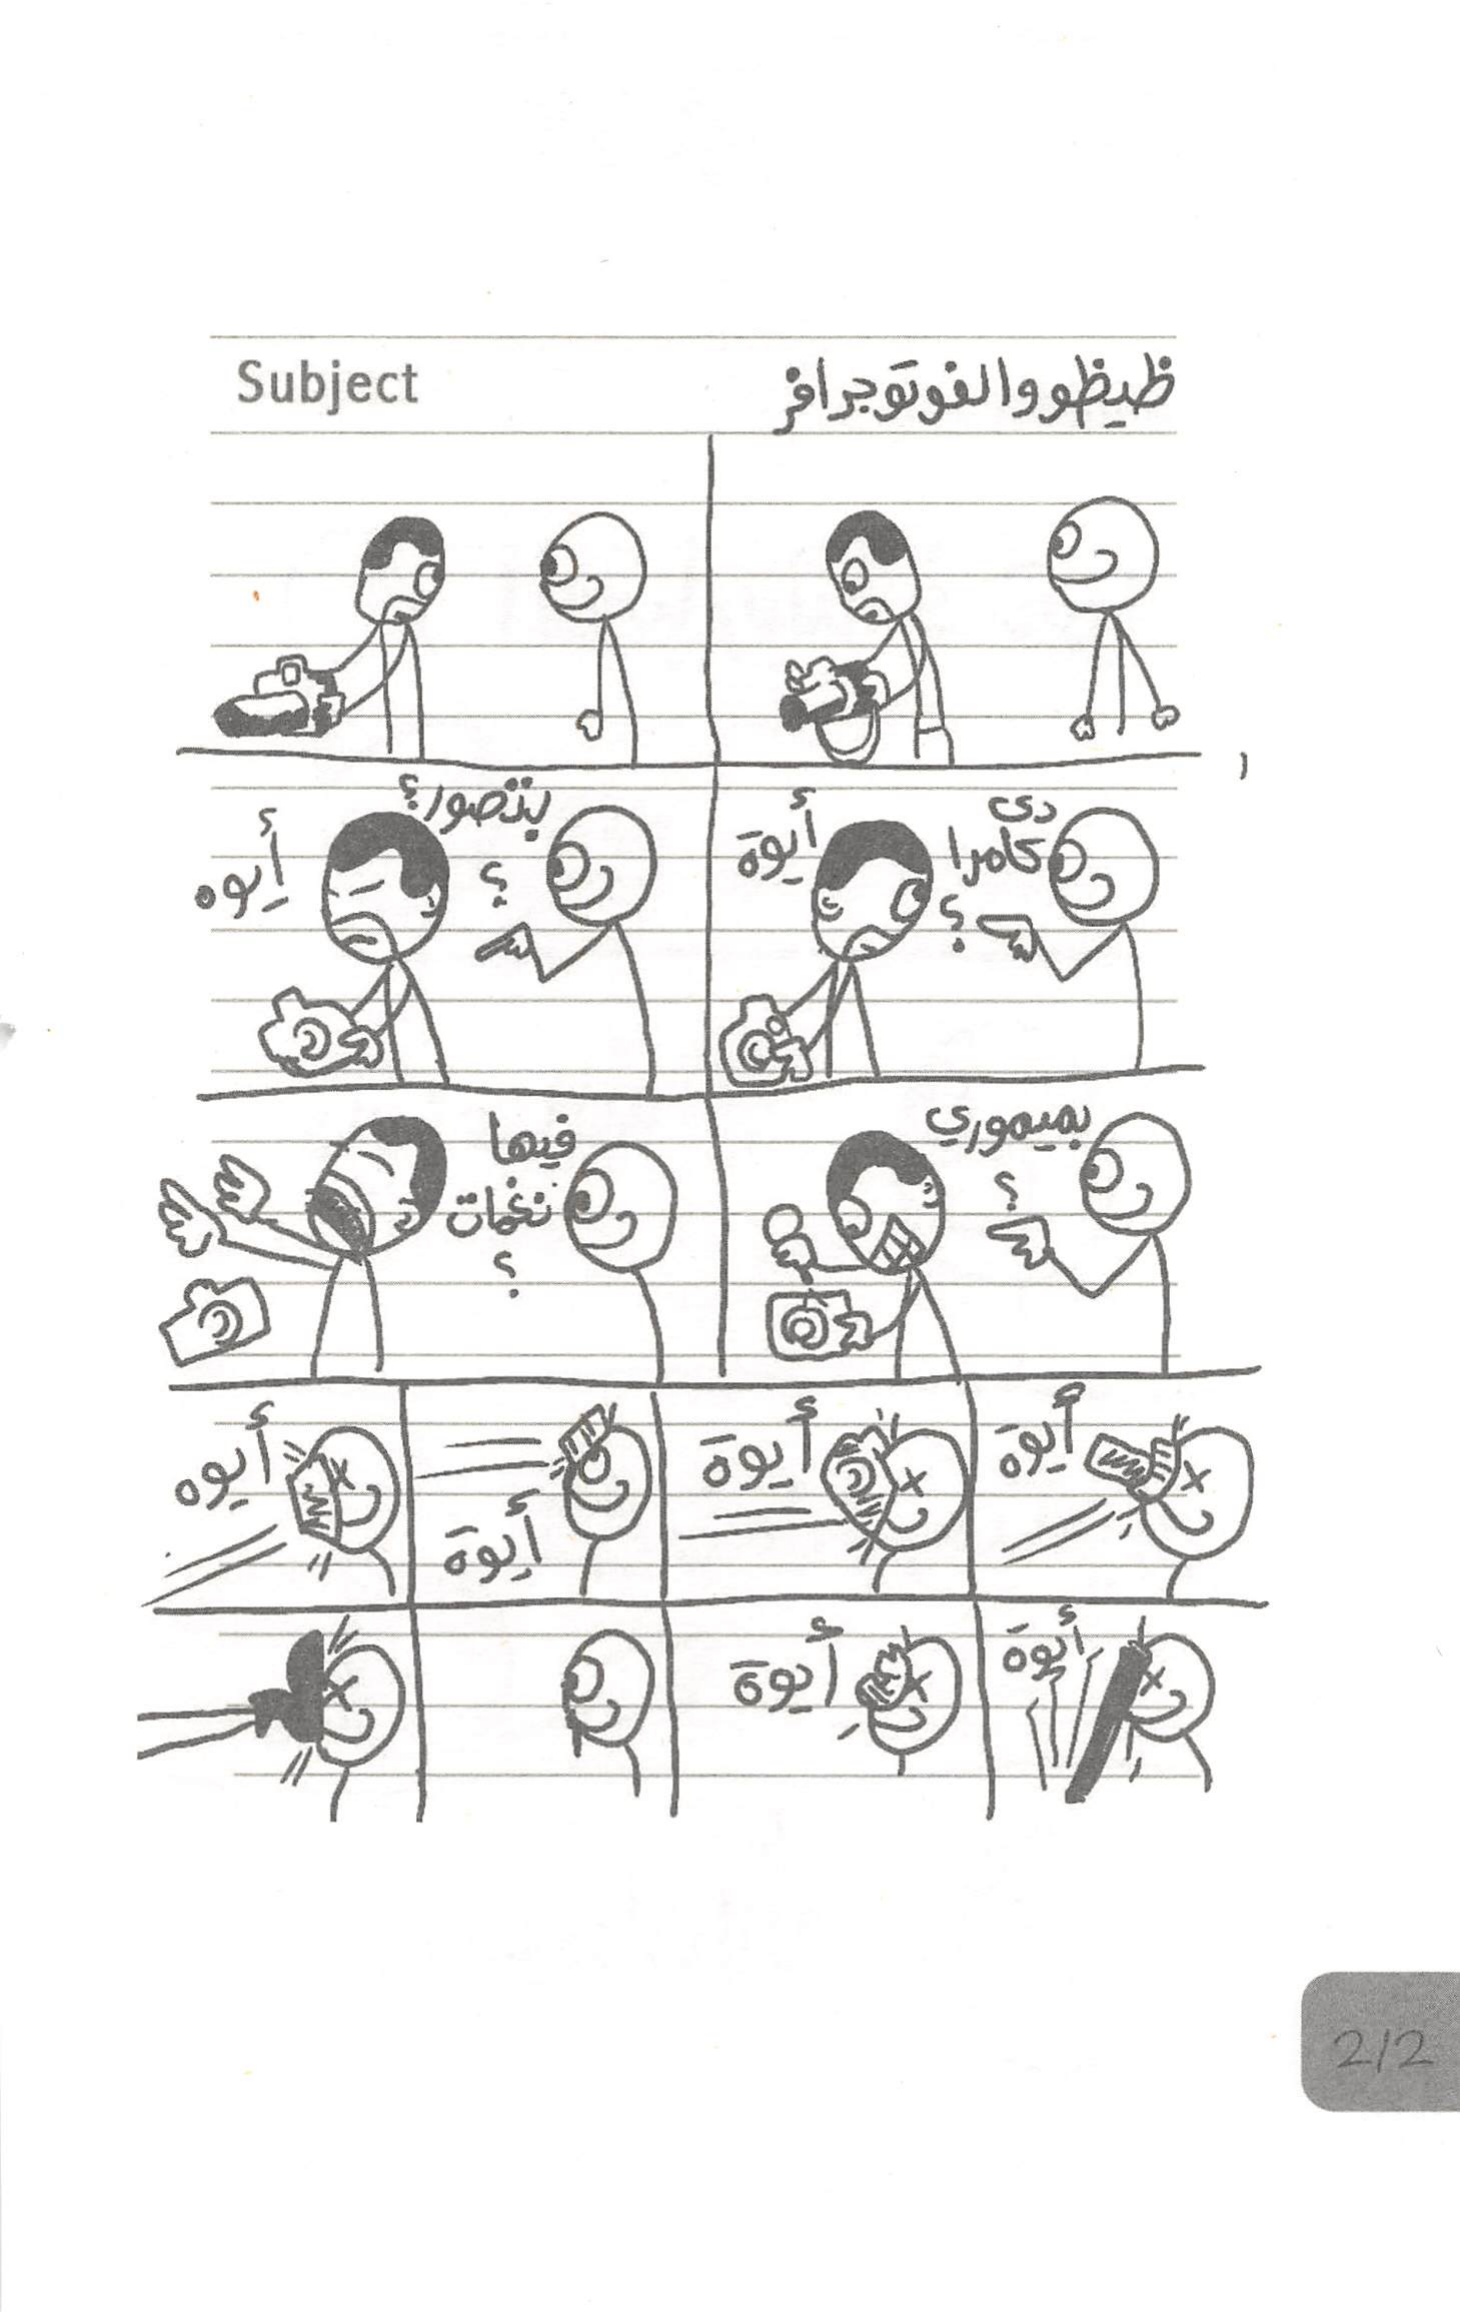 Subject
ظيظو والفوتوجرافر
دى
كامرا
؟
أيوة
بتصور؟
؟
أيوه
بميموري
؟
فيها
نغمات
؟
أيوة
أيوة
أيوة
أيوه
أيوة
أيوة
2/2